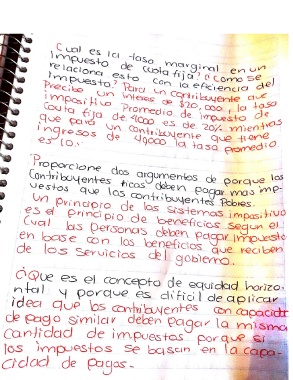 Cual es la tasa marginal en un
impuesto de cuota fija? ¿Como se
relaciona esto con la eficiencia del
impuesto? Para un contribuyente que
Precibe un interes de $20,000, la tasa
impositiva Promedio de impuesto de
Couta fija de 4000 es de 20% mientras
que para un contribuyente que tiene
ingresos de 40000 la tasa promedio
es 10.
Proporcione dos argumentos de porque los
Contribuyentes ricos deben pagar mas imp-
uestos que los contribuyentes Pobres.
Un principio de los sistemas impositivo
es el principio de beneficios segun el
Cual las personas deben pagar impuesto
en base con los beneficios que reciben
de los servicios del gobierno.
¿Que es el concepto de equidad horizo-
ntal y porque es dificil de aplicar
idea que los contribuyentes con capacidad
de pago similar deben pagar la misma
cantidad de impuestos porque si
los impuestos se basan en la capa-
cidad de pagos.